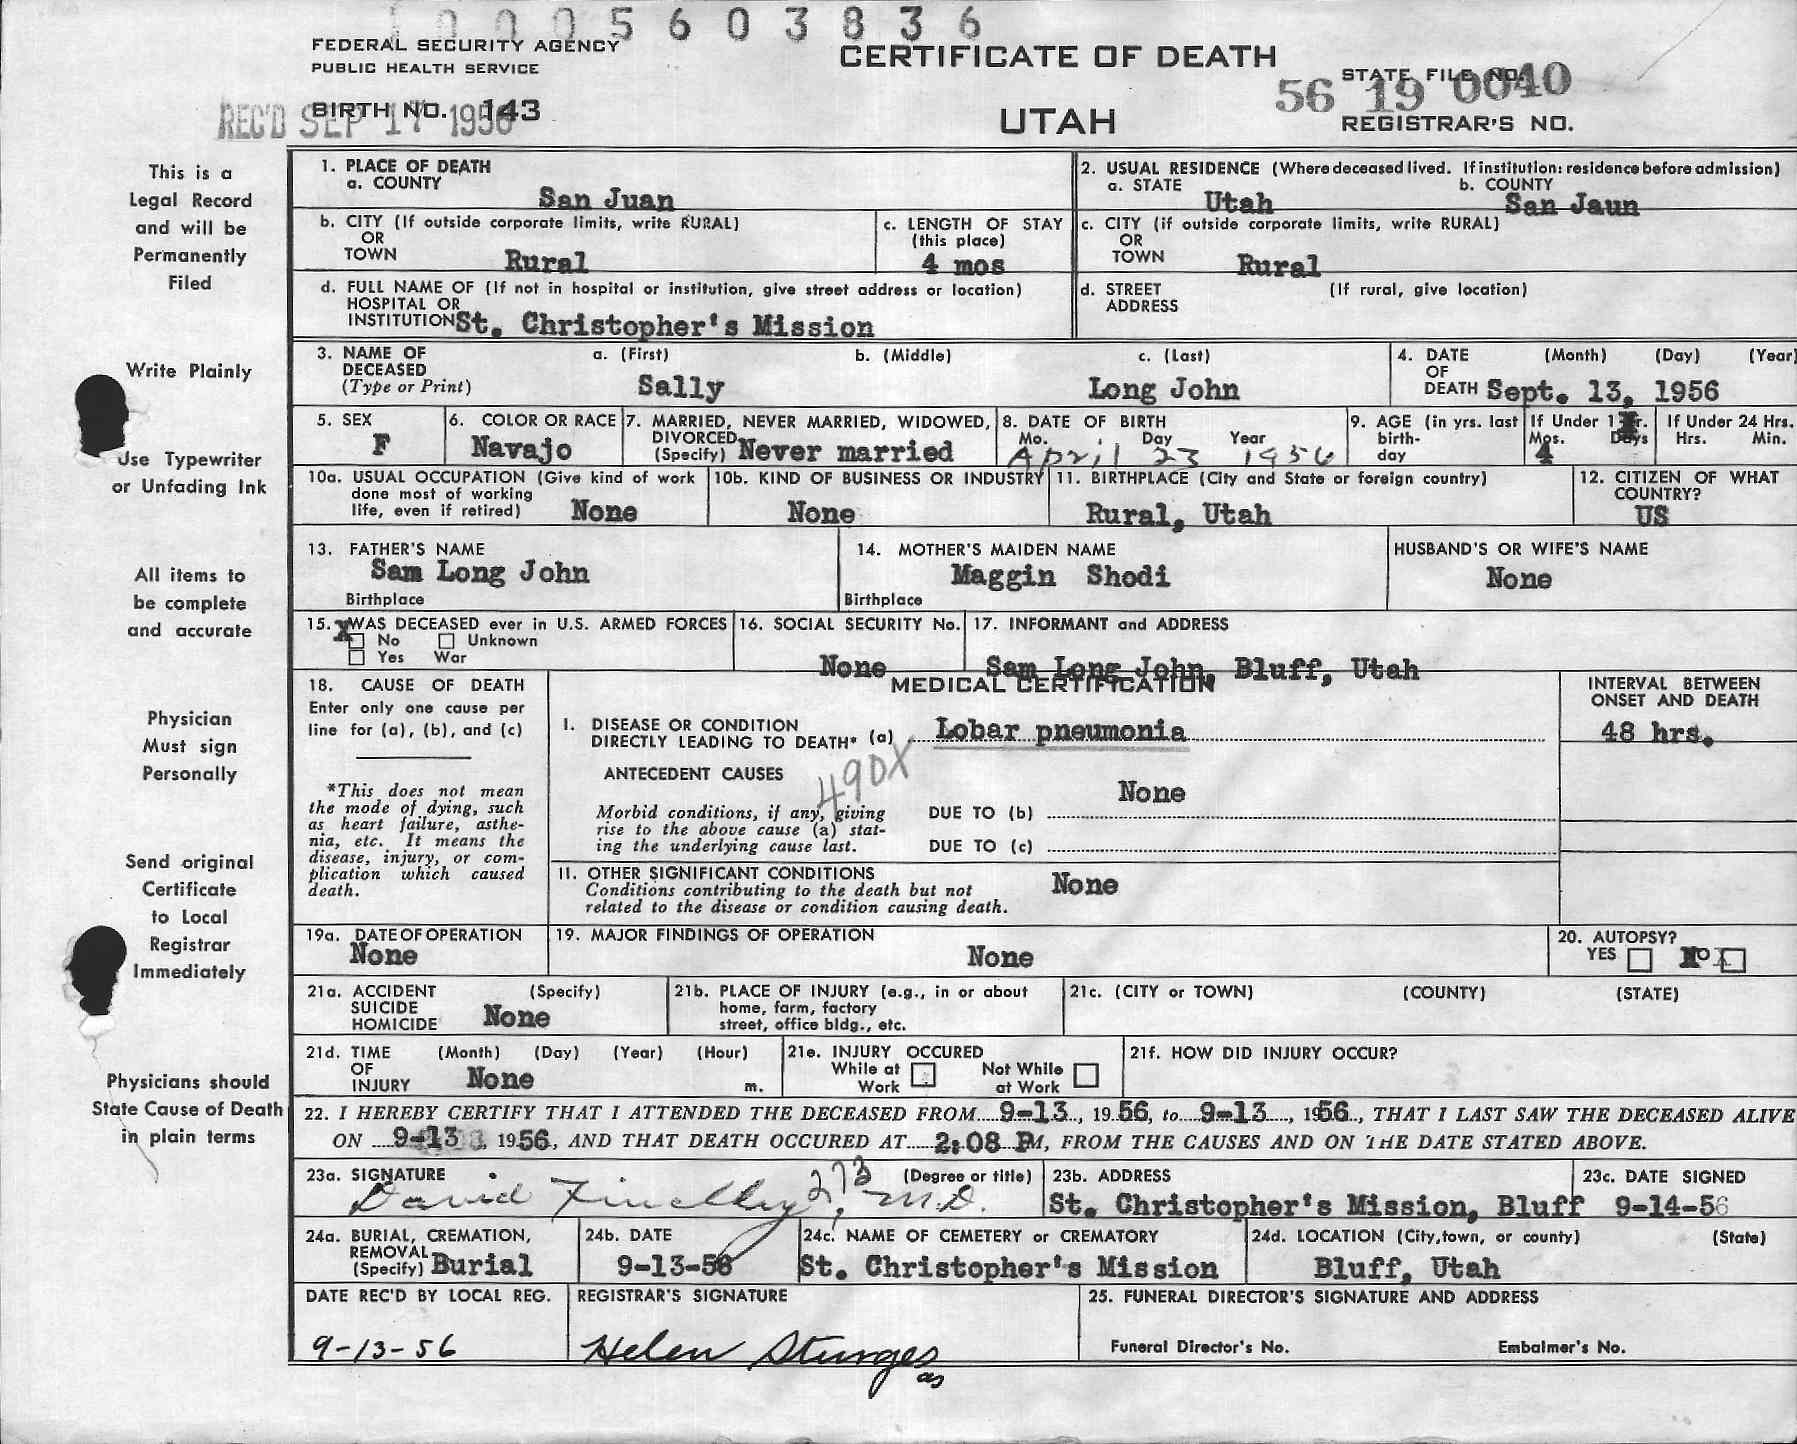 10005603836
FEDERAL SECURITY AGENCY
PUBLIC HEALTH SERVICE
CERTIFICATE OF DEATH
STATE FILE NO.
56 19 0040
BIRTH NO. 143
REC'D SEP 17 1956
UTAH
REGISTRAR'S NO.
This is a
Legal Record
and will be
Permanently
Filed
Write Plainly
Use Typewriter
or Unfading Ink
All items to
be complete
and accurate
Physician
Must sign
Personally
Send original
Certificate
to Local
Registrar
Immediately
Physicians should
State Cause of Death
in plain terms
1. PLACE OF DEATH
a. COUNTY
San Juan
2. USUAL RESIDENCE (Where deceased lived. If institution: residence before admission)
a. STATE
Utah
b. COUNTY
San Jaun
b. CITY (If outside corporate limits, write RURAL)
OR
TOWN
Rural
c. LENGTH OF STAY
(this place)
4 mos
c. CITY (if outside corporate limits, write RURAL)
OR
TOWN
Rural
d. FULL NAME OF (If not in hospital or institution, give street address or location)
HOSPITAL OR
INSTITUTION St. Christopher's Mission
d. STREET
ADDRESS
(If rural, give location)
3. NAME OF
DECEASED
(Type or Print)
a. (First)
Sally
b. (Middle)
c. (Last)
Long John
4. DATE
OF
DEATH
(Month) (Day) (Year)
Sept. 13, 1956
5. SEX
F
6. COLOR OR RACE
Navajo
7. MARRIED, NEVER MARRIED, WIDOWED,
DIVORCED
(Specify) Never married
8. DATE OF BIRTH
Mo. Day Year
April 23 1956
9. AGE (in yrs. last
birth-
day
If Under 1 Yr.
Mos. Days
4
If Under 24 Hrs.
Hrs. Min.
10a. USUAL OCCUPATION (Give kind of work
done most of working
life, even if retired) None
10b. KIND OF BUSINESS OR INDUSTRY
None
11. BIRTHPLACE (City and State or foreign country)
Rural, Utah
12. CITIZEN OF WHAT
COUNTRY?
US
13. FATHER'S NAME
Sam Long John
Birthplace
14. MOTHER'S MAIDEN NAME
Maggin Shodi
Birthplace
HUSBAND'S OR WIFE'S NAME
None
15. WAS DECEASED ever in U.S. ARMED FORCES
X No Unknown
Yes War
16. SOCIAL SECURITY No.
None
17. INFORMANT and ADDRESS
Sam Long John, Bluff, Utah
18. CAUSE OF DEATH
Enter only one cause per
line for (a), (b), and (c)
*This does not mean
the mode of dying, such
as heart failure, asthe-
nia, etc. It means the
disease, injury, or com-
plication which caused
death.
MEDICAL CERTIFICATION
I. DISEASE OR CONDITION
DIRECTLY LEADING TO DEATH* (a) Lobar pneumonia
INTERVAL BETWEEN
ONSET AND DEATH
48 hrs.
ANTECEDENT CAUSES
490X
Morbid conditions, if any, giving
rise to the above cause (a) stat-
ing the underlying cause last.
None
DUE TO (b)
DUE TO (c)
II. OTHER SIGNIFICANT CONDITIONS
Conditions contributing to the death but not
related to the disease or condition causing death.
None
19a. DATE OF OPERATION
None
19. MAJOR FINDINGS OF OPERATION
None
20. AUTOPSY?
YES NO X
21a. ACCIDENT
SUICIDE
HOMICIDE
(Specify)
None
21b. PLACE OF INJURY (e.g., in or about
home, farm, factory
street, office bldg., etc.
21c. (CITY or TOWN) (COUNTY) (STATE)
21d. TIME
OF
INJURY
(Month) (Day) (Year) (Hour)
None
m.
21e. INJURY OCCURED
While at
Work
Not While
at Work
21f. HOW DID INJURY OCCUR?
22. I HEREBY CERTIFY THAT I ATTENDED THE DECEASED FROM 9-13, 1956, to 9-13, 1956, THAT I LAST SAW THE DECEASED ALIVE
ON 9-13, 1956, AND THAT DEATH OCCURED AT 2:08 PM, FROM THE CAUSES AND ON THE DATE STATED ABOVE.
23a. SIGNATURE
David M.D.
273
(Degree or title)
23b. ADDRESS
St. Christopher's Mission, Bluff
23c. DATE SIGNED
9-14-56
24a. BURIAL, CREMATION,
REMOVAL
(Specify) Burial
24b. DATE
9-13-56
24c. NAME OF CEMETERY or CREMATORY
St. Christopher's Mission
24d. LOCATION (City, town, or county) (State)
Bluff, Utah
DATE REC'D BY LOCAL REG.
9-13-56
REGISTRAR'S SIGNATURE
Helen Sturges
as
25. FUNERAL DIRECTOR'S SIGNATURE AND ADDRESS
Funeral Director's No. Embalmer's No.